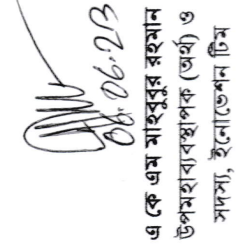 06.06.23
এ কে এম মাহবুবুর রহমান
উপমহাব্যবস্থাপক (অর্থ) ও
সদস্য, ইনোভেশন টিম